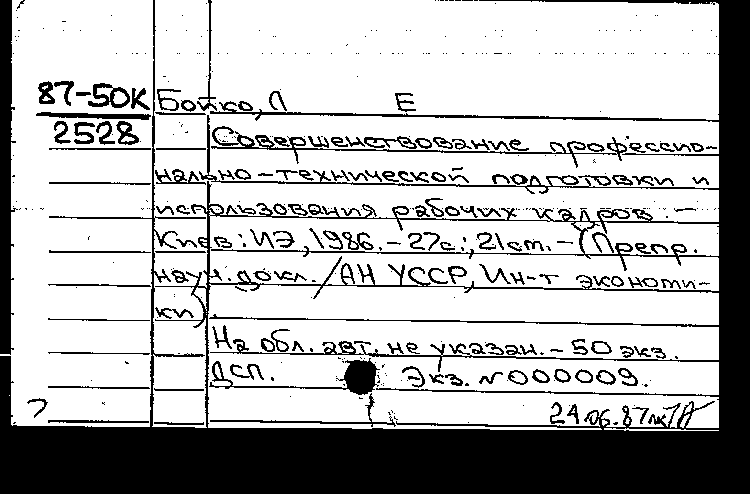 87-50К Бойко, Л Е
2528 Совершенствование профессио-
нально-технической подготовки и
использования рабочих кадров. -
Киев: ИЭ, 1986. - 27с.; 21см. - (Препр.
науч. докл. / АН УССР, Ин-т экономи-
ки).
На обл. авт. не указан. - 50 экз.
ДСП. Экз. №000009.
24.06.87